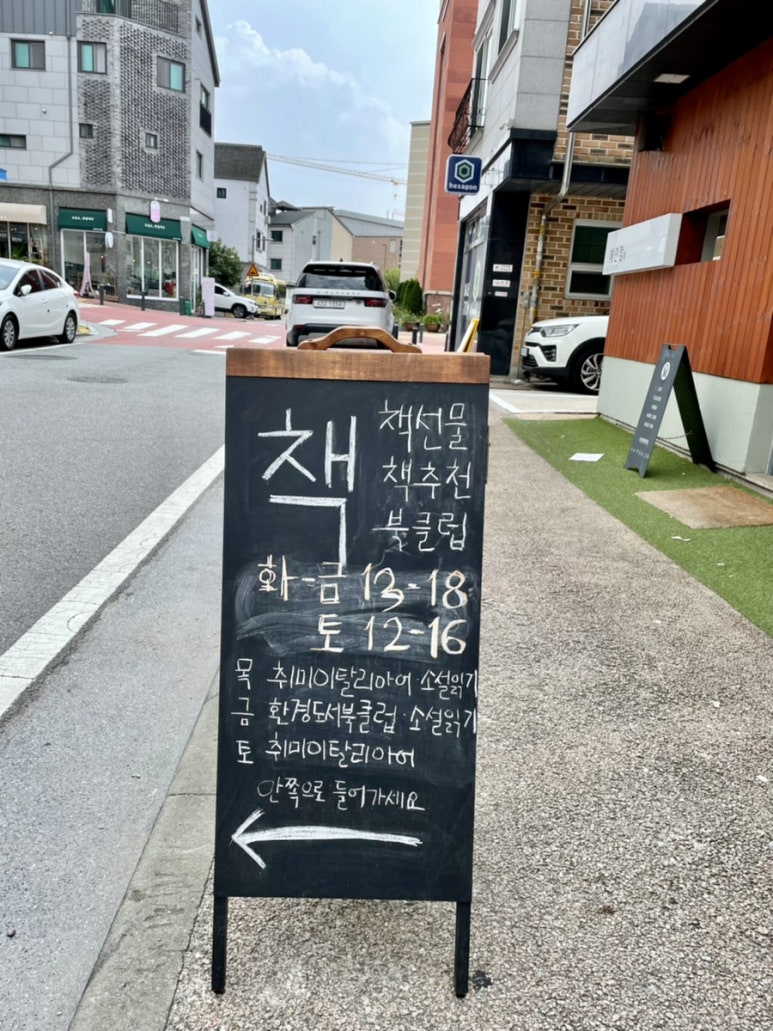 hexagon
책
책선물
책추천
북클럽
화-금 13-18
토 12-16
목 취미이탈리아어·소설읽기
금 환경도서북클럽·소설읽기
토 취미이탈리아어
안쪽으로 들어가세요